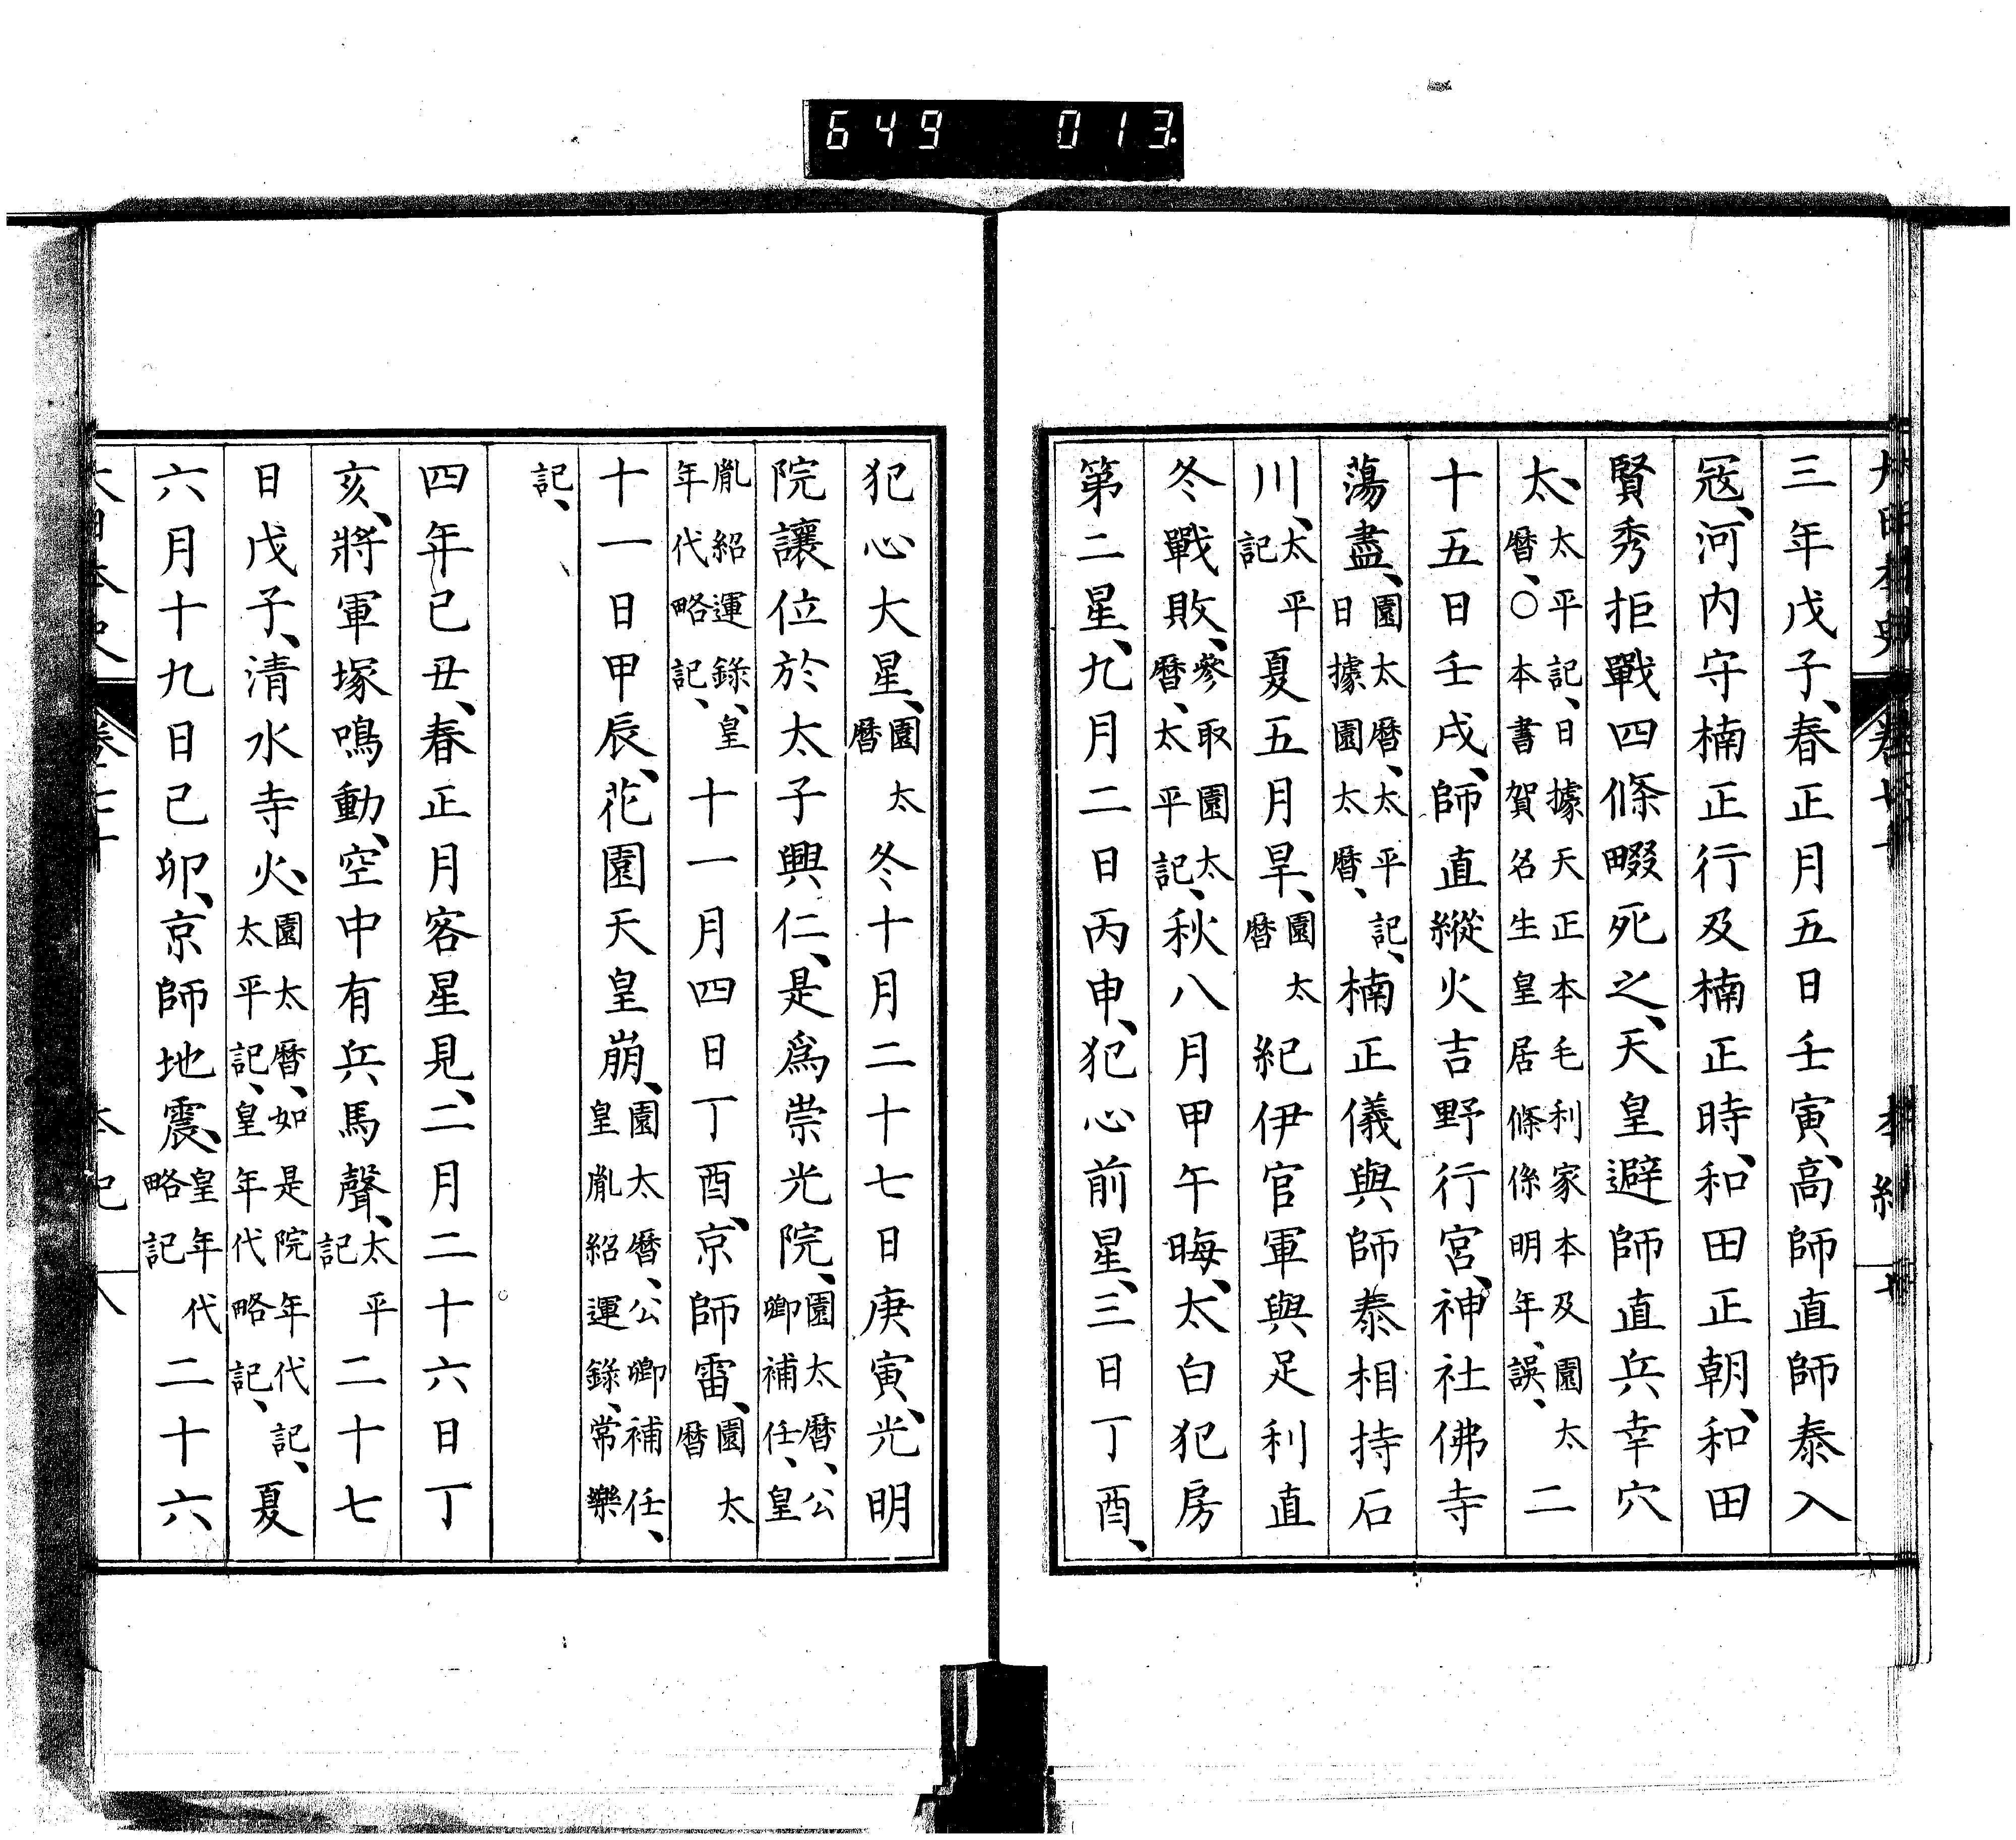 649 013
三年戊子、春正月五日壬寅、高師直師泰入
冦、河内守楠正行及楠正時、和田正朝、和田
賢秀拒戰四條畷死之、天皇避師直兵幸穴
太、太平記、日據天正本毛利家本及園太暦、○本書賀名生皇居條係明年、誤、二
十五日壬戌、師直縱火吉野行宮、神社佛寺
蕩盡、園太暦、太平記、日據園太暦、楠正儀與師泰相持石
川、太平記夏五月旱、園太暦紀伊官軍與足利直
冬戰敗、參取園太暦、太平記、秋八月甲午晦、太白犯房
第二星、九月二日丙申、犯心前星、三日丁酉、
犯心大星、園太暦冬十月二十七日庚寅、光明
院讓位於太子興仁、是爲崇光院、園太暦、公卿補任、皇
胤紹運錄、皇年代略記、十一月四日丁酉、京師雷、園太暦
十一日甲辰、花園天皇崩、園太暦、公卿補任、皇胤紹運錄、常樂
記、
四年己丑、春正月客星見、二月二十六日丁
亥、將軍塚鳴動、空中有兵馬聲、太平記二十七
日戊子、清水寺火、園太暦、如是院年代記、太平記、皇年代略記、夏
六月十九日己卯、京師地震、皇年代略記二十六